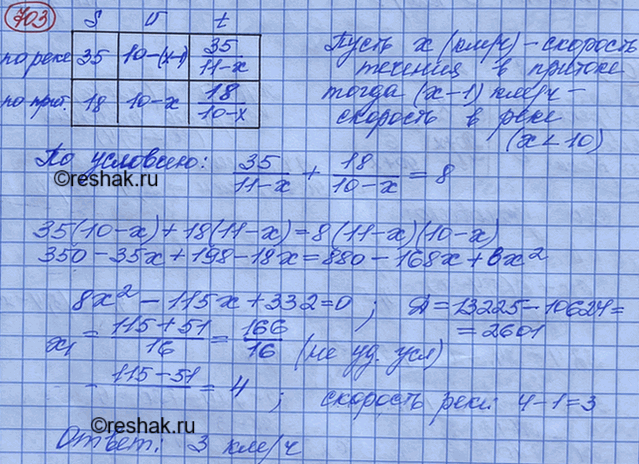 703
S v t
по реке 35 10-(x-1) 35/(11-x)
по прит. 18 10-x 18/(10-x)
Пусть x (км/ч) - скорость
течения в притоке
тогда (x-1) км/ч -
скорость в реке
(x < 10)
По условию: 35/(11-x) + 18/(10-x) = 8
©reshak.ru
35(10-x)+18(11-x)=8(11-x)(10-x)
350-35x+198-18x=880-168x+8x²
8x²-115x+332=0 ; Д=13225-10624=
=2601
x₁ = (115+51)/16 = 166/16 (не уд. усл)
= (115-51)/ = 4 ; скорость реки 4-1=3
©reshak.ru
Ответ: 3 км/ч